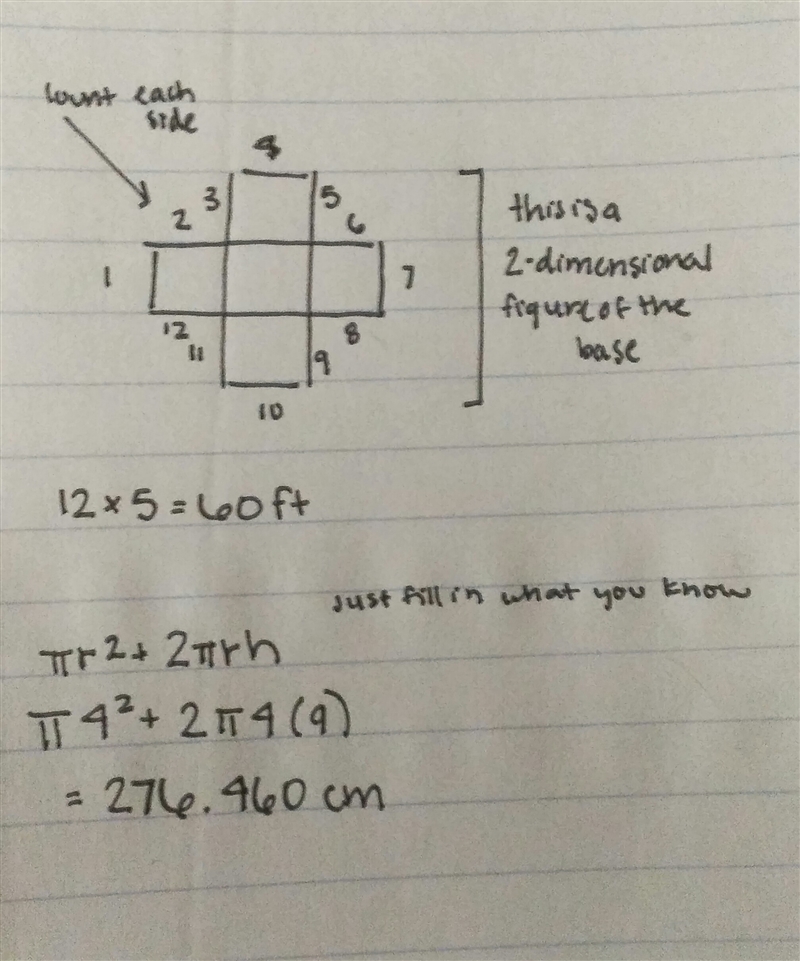 count each
side
4
3 5
2 6
1 7
12 8
11 9
10
this is a
2-dimensional
figure of the
base
12 × 5 = 60 ft
Just fill in what you know
πr² + 2πrh
π4² + 2π4(9)
= 276.460 cm